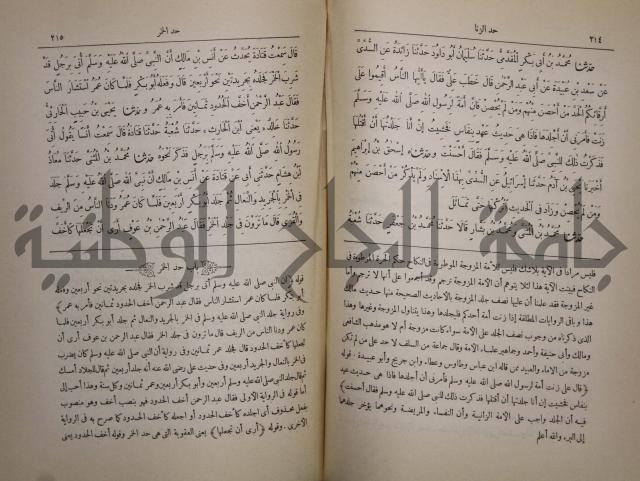 ٢١٤ حد الزنا
حدثنا محمد بن أبي بكر المقدمي حدثنا سليمان أبو داود حدثنا زائدة عن السدي
عن سعد بن عبيدة عن أبي عبد الرحمن قال خطب علي فقال يا أيها الناس أقيموا على
أرقائكم الحد من أحصن منهم ومن لم يحصن فان أمة لرسول الله صلى الله عليه وسلم
زنت فأمرني أن أجلدها فاذا هي حديث عهد بنفاس فخشيت إن أنا جلدتها أن أقتلها
فذكرت ذلك للنبي صلى الله عليه وسلم فقال أحسنت وحدثناه إسحق بن ابراهيم
أخبرنا يحيى بن آدم حدثنا إسرائيل عن السدي بهذا الاسناد ولم يذكر من أحصن منهم
ومن لم يحصن وزاد في الحديث اتركها حتى تماثل
حدثنا محمد بن المثنى ومحمد بن بشار قالا حدثنا محمد بن جعفر حدثنا شعبة
فليس مرادا في الآية بلا شك فليس للأمة المزوجة الموطوءة في النكاح حكم الحرة الموطوءة في
النكاح فبينت الآية هذا لئلا يتوهم أن الأمة المزوجة ترجم وقد أجمعوا على أنها لا ترجم وأما
غير المزوجة فقد علمنا أن عليها نصف جلد المزوجة بالأحاديث الصحيحة منها حديث مالك
هذا وباقي الروايات المطلقة إذا زنت أمة أحدكم فليجلدها وهذا يتناول المزوجة وغيرها وهذا
الذي ذكرناه من وجوب نصف الجلد على الأمة سواء كانت مزوجة أم لا هو مذهب الشافعي
ومالك وأبي حنيفة وأحمد وجماهير علماء الأمة وقال جماعة من السلف لا حد على من لم تكن
مزوجة من الاماء والعبيد ممن قاله ابن عباس وطاوس وعطاء وابن جريج وأبو عبيدة . قوله
﴿قال علي زنت أمة لرسول الله صلى الله عليه وسلم فأمرني أن أجلدها فاذا هي حديث عهد
بنفاس فخشيت إن أنا جلدتها أن أقتلها فذكرت ذلك للنبي صلى الله عليه وسلم فقال أحسنت﴾
فيه أن الجلد واجب على الأمة الزانية وأن النفساء والمريضة ونحوهما يؤخر جلدهما
إلى البرء والله أعلم
حد الخمر ٢١٥
قال سمعت قتادة يحدث عن أنس بن مالك أن النبي صلى الله عليه وسلم أتي برجل قد
شرب الخمر فجلده بجريدتين نحو أربعين قال وفعله أبو بكر فلما كان عمر استشار الناس
فقال عبد الرحمن أخف الحدود ثمانين فأمر به عمر وحدثنا يحيى بن حبيب الحارثي
حدثنا خالد يعني ابن الحارث حدثنا شعبة حدثنا قتادة قال سمعت أنسا يقول أتي
رسول الله صلى الله عليه وسلم برجل فذكر نحوه حدثنا محمد بن المثنى حدثنا معاذ
ابن هشام حدثني أبي عن قتادة عن أنس بن مالك أن نبي الله صلى الله عليه وسلم جلد
في الخمر بالجريد والنعال ثم جلد أبو بكر أربعين فلما كان عمر ودنا الناس من الريف
والقرى قال ما ترون في جلد الخمر فقال عبد الرحمن بن عوف أرى أن تجعلها كأخف
باب حد الخمر
قوله ﴿إن النبي صلى الله عليه وسلم أتي برجل قد شرب الخمر فجلده بجريدتين نحو أربعين وفعله
أبو بكر فلما كان عمر استشار الناس فقال عبد الرحمن أخف الحدود ثمانين فأمر به عمر﴾
وفي رواية جلد النبي صلى الله عليه وسلم في الخمر بالجريد والنعال ثم جلد أبو بكر أربعين فلما
كان عمر ودنا الناس من الريف قال ما ترون في جلد الخمر فقال عبد الرحمن بن عوف أرى أن
تجعلها كأخف الحدود قال فجلد عمر ثمانين وفي رواية أن النبي صلى الله عليه وسلم كان يضرب
في الخمر بالنعال والجريد أربعين وفي حديث علي رضي الله عنه أنه جلد أربعين ثم قال للجلاد أمسك
ثم قال جلد النبي صلى الله عليه وسلم أربعين وأبو بكر أربعين وعمر ثمانين وكل سنة وهذا أحب إلى
أما قوله في الرواية الأولى فقال عبد الرحمن أخف الحدود فهو بنصب أخف وهو منصوب
بفعل محذوف أي اجلده كأخف الحدود أو اجعله كأخف الحدود كما صرح به في الرواية
الأخرى . وقوله ﴿أرى أن تجعلها﴾ يعني العقوبة التي هي حد الخمر وقوله أخف الحدود يعني
جامعة النجاح الوطنية